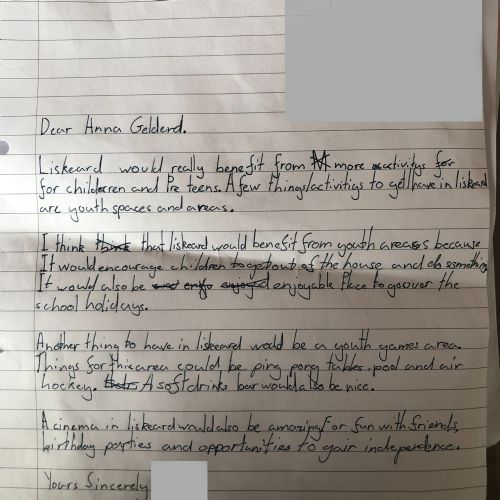 Dear Anna Gelderd.
Liskeard would really benefit from more activitys
for childeren and Pre teens. A few things/activitiys to get/have in liskeard
are youth spaces and areas.
I think that liskeard would benefit from youth areas because
It would encourage children to get out of the house and do something
It would also be enjoyable Place to go over the
school holidays.
Another thing to have in liskeard would be a youth games area.
Things for this area could be ping pong tables, pool and air
hockey. A soft drinks bar would also be nice.
A cinema in liskeard would also be amazing For fun with friends,
birthday parties and opportunities to gain independence.
Yours Sincerely